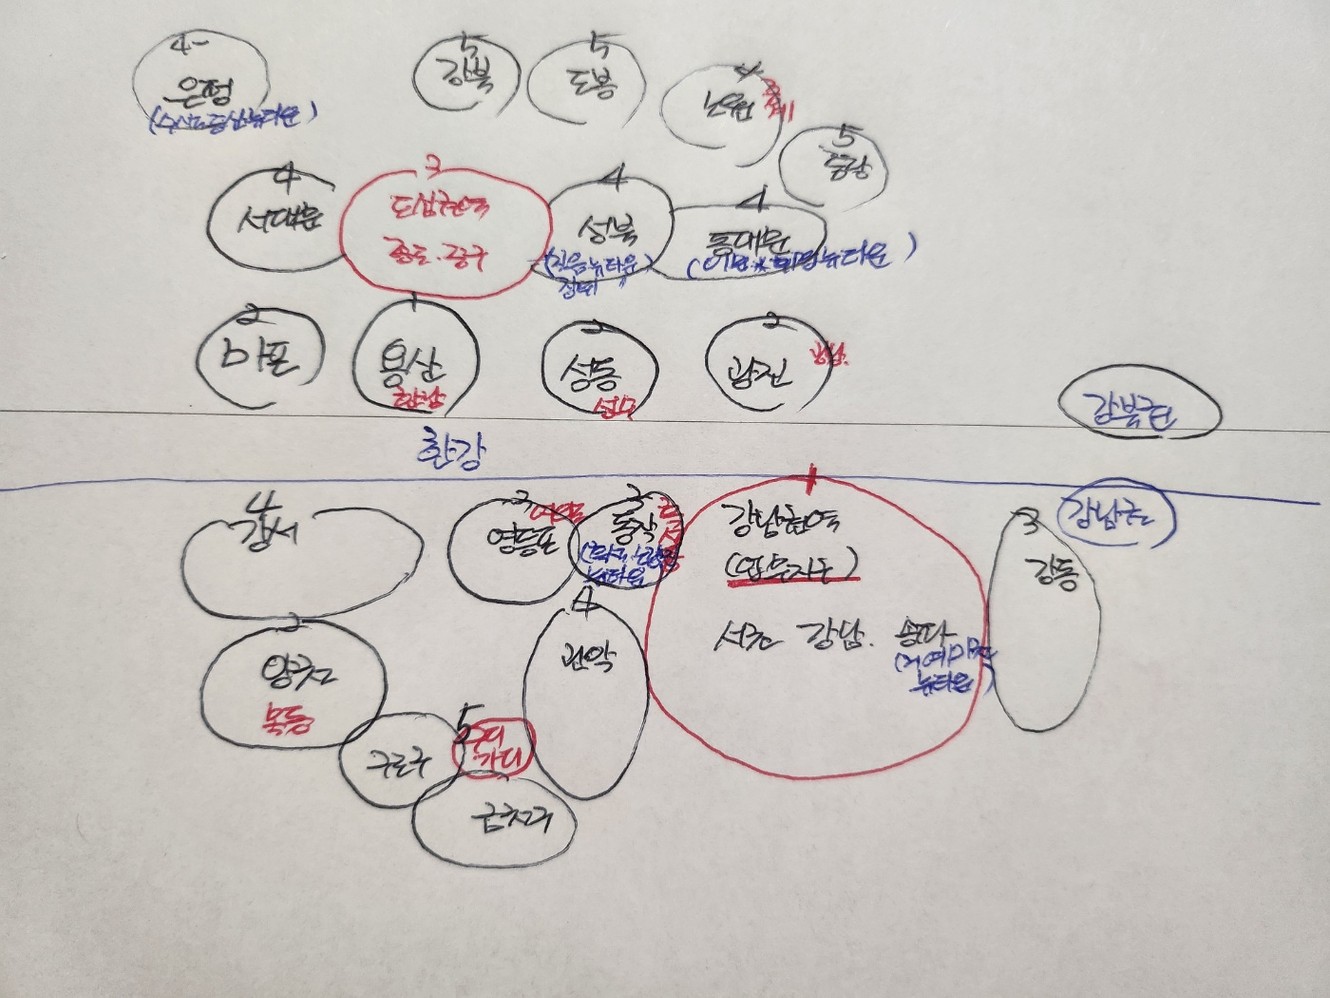 4-
은평
(수색.증산뉴타운)
5
강북
5
도봉
4
노원
중계
5
중랑
4
서대문
3
도심권역
종로.중구
4
성북
(길음뉴타운)
4
동대문
뉴타운)
2
마포
1
용산
한남
2
성동
성수
2
광진
광남
강북권
한강
강남권
4
강서
3
영등포
여의도
2
동작
뉴타운
1
강남권역
(압구정동)
서초 강남. 송파
(거여마천
뉴타운)
3
강동
3
양천
목동
4
관악
구로구
5
구디
가디
금천구